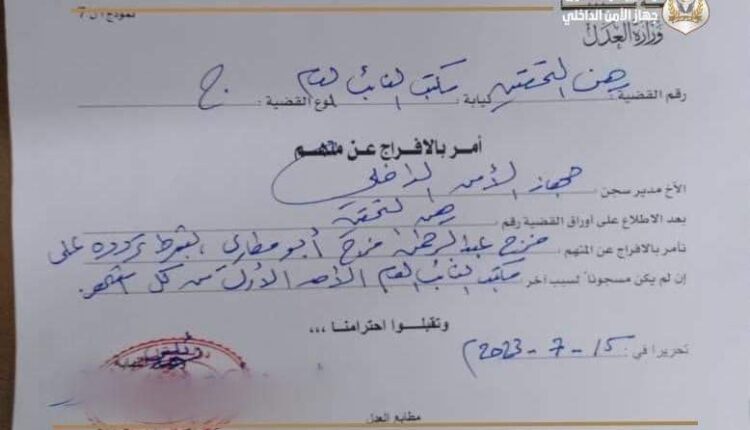 جهاز الأمن الداخلي
وزارة العدل
رقم القضية: رهن التحقيق نيابة: مكتب النائب العام نوع القضية: ج
أمر بالافراج عن متهم
الأخ مدير سجن جهاز الأمن الداخلي
بعد الاطلاع على أوراق القضية رقم رهن التحقيق
نأمر بالافراج عن المتهم: فرج عبدالرحمن فرج أبومطاري، بشرط تردده على
إن لم يكن مسجوناً لسبب آخر مكتب النائب العام الأحد الأول من كل شهر
وتقبلوا احترامنا ،،،
تحريرا في: 15-7-2023
مطابع العدل